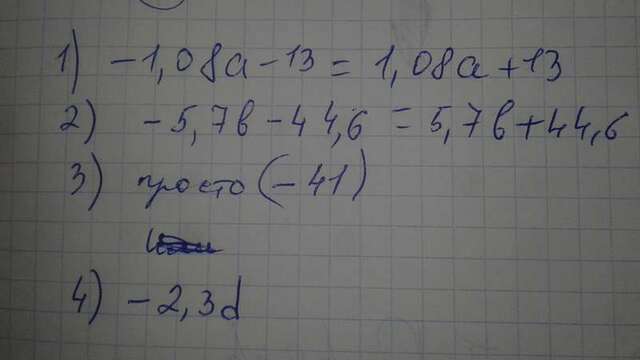 1) -1,08a-13 = 1,08a+13
2) -5,7в-44,6 = 5,7в+44,6
3) просто (-41)
4) -2,3d